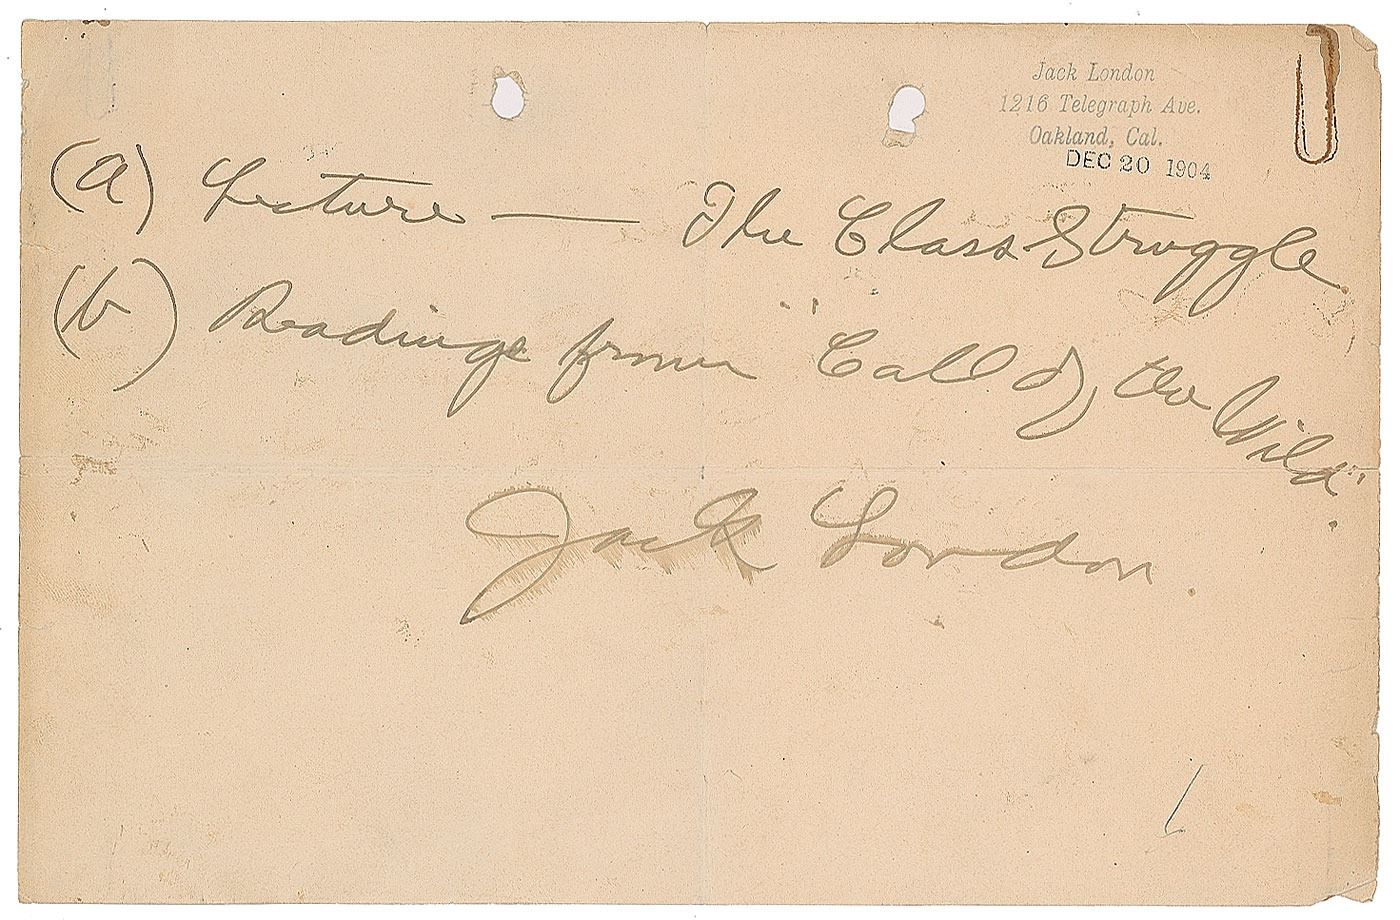 Jack London
1216 Telegraph Ave.
Oakland, Cal.
DEC 20 1904
(a) Lecture — The Class Struggle.
(b) Readings from "Call of the Wild".
Jack London